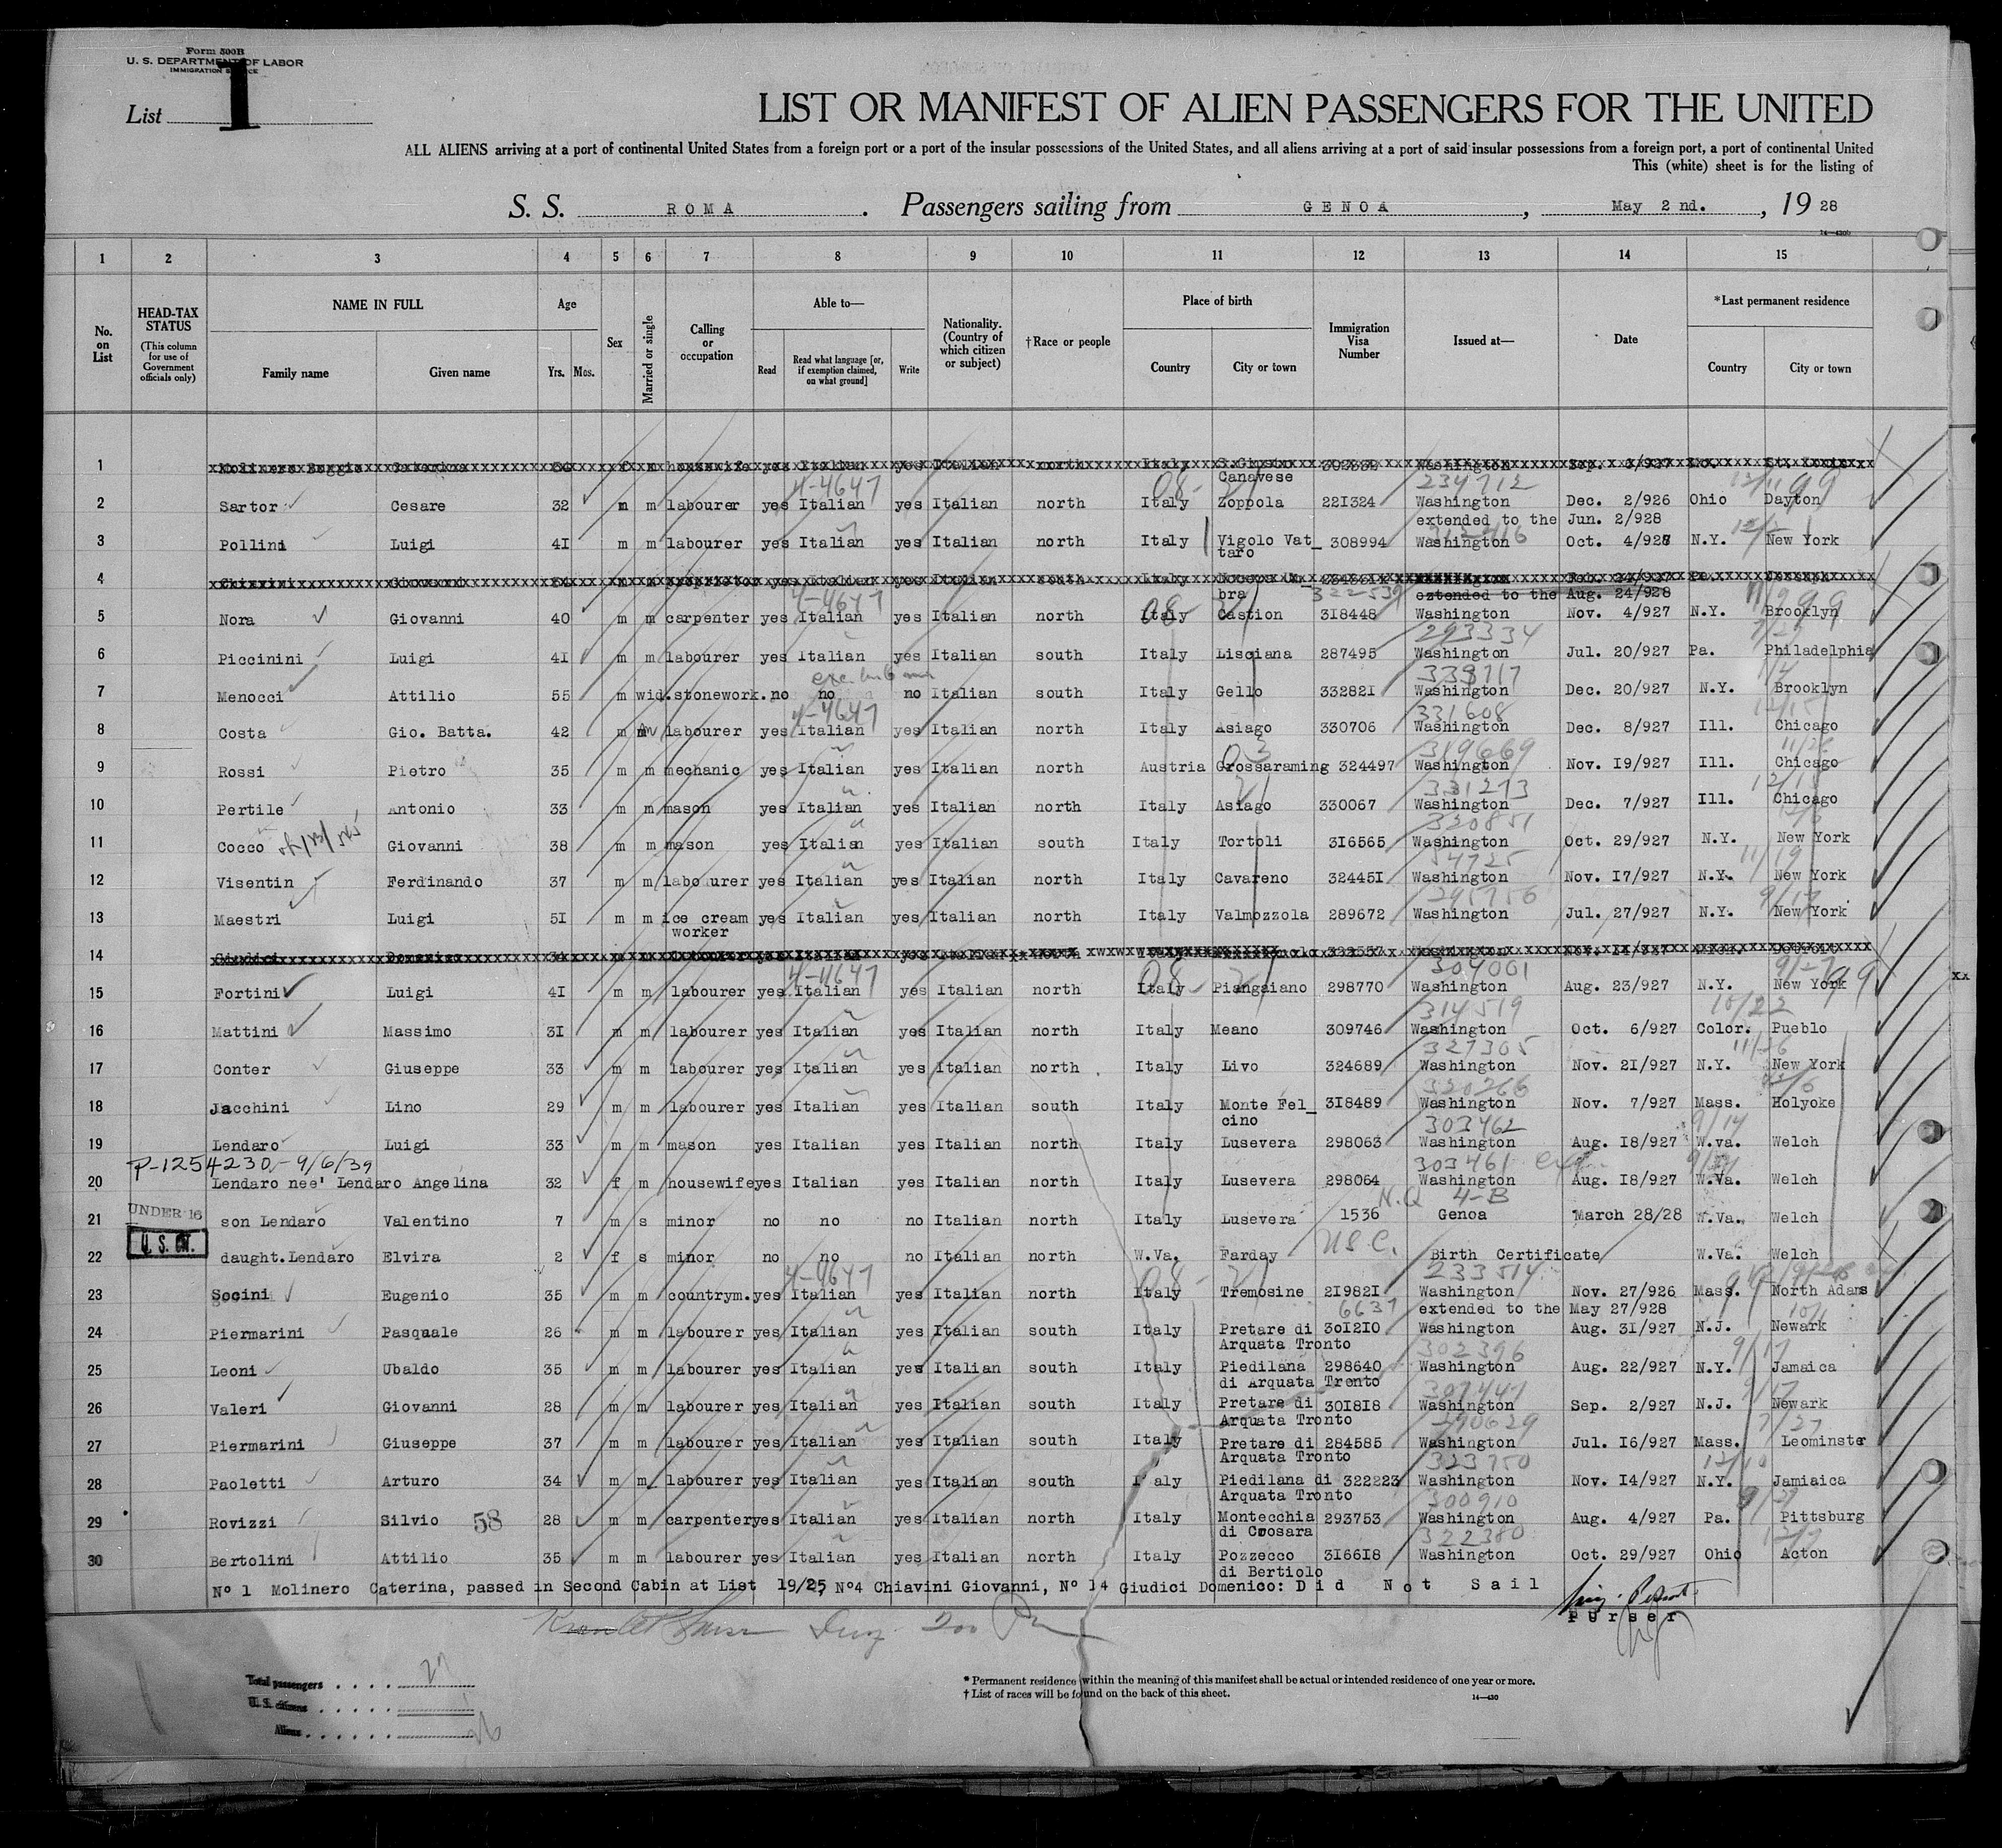 Form 500B
U. S. DEPARTMENT OF LABOR
IMMIGRATION SERVICE
List 1
LIST OR MANIFEST OF ALIEN PASSENGERS FOR THE UNITED
ALL ALIENS arriving at a port of continental United States from a foreign port or a port of the insular possessions of the United States, and all aliens arriving at a port of said insular possessions from a foreign port, a port of continental United
This (white) sheet is for the listing of
S. S. ROMA. Passengers sailing from GENOA, May 2 nd., 19 28
14—430b
1 2 3 4 5 6 7 8 9 10 11 12 13 14 15
No. on List
HEAD-TAX STATUS (This column for use of Government officials only)
NAME IN FULL Family name Given name
Age Yrs. Mos.
Sex
Married or single
Calling or occupation
Able to— Read Read what language [or, if exemption claimed, on what ground] Write
Nationality. (Country of which citizen or subject)
†Race or people
Place of birth Country City or town
Immigration Visa Number
Issued at—
Date
*Last permanent residence Country City or town
1 Canavese
4-4647 08- 234712
2 Sartor Cesare 32 m m labourer yes Italian yes Italian north Italy Zoppola 221324 Washington Dec. 2/926 Ohio Dayton
extended to the Jun. 2/928
3 Pollini Luigi 41 m m labourer yes Italian yes Italian north Italy Vigolo Vat_ taro 308994 Washington Oct. 4/928 N.Y. New York
4 bra extended to the Aug. 24/928
4-4647 08-
5 Nora Giovanni 40 m m carpenter yes Italian yes Italian north Italy Castion 318448 Washington Nov. 4/927 N.Y. Brooklyn
293334
6 Piccinini Luigi 41 m m labourer yes Italian yes Italian south Italy Lisciana 287495 Washington Jul. 20/927 Pa. Philadelphia
7 Menocci Attilio 55 m wid. stonework. no no no Italian south Italy Gello 332821 Washington Dec. 20/927 N.Y. Brooklyn
4-4647 331608
8 Costa Gio. Batta. 42 m labourer yes Italian yes Italian north Italy Asiago 330706 Washington Dec. 8/927 Ill. Chicago
03 319669 11/26
9 Rossi Pietro 35 m m mechanic yes Italian yes Italian north Austria Grossaraming 324497 Washington Nov. 19/927 Ill. Chicago
331273
10 Pertile Antonio 33 m m mason yes Italian yes Italian north Italy Asiago 330067 Washington Dec. 7/927 Ill. Chicago
320851
11 Cocco Giovanni 38 m m mason yes Italian yes Italian south Italy Tortoli 316565 Washington Oct. 29/927 N.Y. New York
11/19
12 Visentin Ferdinando 37 m m labo urer yes Italian yes Italian north Italy Cavareno 324451 Washington Nov. 17/927 N.Y. New York
295756
13 Maestri Luigi 51 m m ice cream worker yes Italian yes Italian north Italy Valmozzola 289672 Washington Jul. 27/927 N.Y. New York
14
4-4647 08- 304001 9/27
15 Fortini Luigi 41 m m labourer yes Italian yes Italian north Italy Piangaiano 298770 Washington Aug. 23/927 N.Y. New York
314519 10/22
16 Mattini Massimo 31 m m labourer yes Italian yes Italian north Italy Meano 309746 Washington Oct. 6/927 Color. Pueblo
327305 11/26
17 Conter Giuseppe 33 m m labourer yes Italian yes Italian north Italy Livo 324689 Washington Nov. 21/927 N.Y. New York
320266
18 Jacchini Lino 29 m m labourer yes Italian yes Italian south Italy Monte Fel_ cino 318489 Washington Nov. 7/927 Mass. Holyoke
303462 9/14
19 Lendaro Luigi 33 m m mason yes Italian yes Italian north Italy Lusevera 298063 Washington Aug. 18/927 W.va. Welch
P-1254230-9/6/39 303461
20 Lendaro nee' Lendaro Angelina 32 f m housewife yes Italian yes Italian north Italy Lusevera 298064 Washington Aug. 18/927 W.Va. Welch
UNDER 16 N.Q 4-B
21 son Lendaro Valentino 7 m s minor no no no Italian north Italy Lusevera 1536 Genoa March 28/28 W.Va. Welch
U.S.C.
22 daught. Lendaro Elvira 2 f s minor no no no Italian north W.Va. Farday Birth Certificate W.Va. Welch
4-4647 08- 233514
23 Socini Eugenio 35 m m countrym. yes Italian yes Italian north Italy Tremosine 219821 Washington Nov. 27/926 Mass. North Adams
6637 extended to the May 27/928
24 Piermarini Pasquale 26 m m labourer yes Italian yes Italian south Italy Pretare di Arquata Tronto 301210 Washington Aug. 31/927 N.J. Newark
302396 9/17
25 Leoni Ubaldo 35 m m labourer yes Italian yes Italian south Italy Piedilana di Arquata Trento 298640 Washington Aug. 22/927 N.Y. Jamaica
307447
26 Valeri Giovanni 28 m m labourer yes Italian yes Italian south Italy Pretare di Arquata Tronto 301818 Washington Sep. 2/927 N.J. Newark
290629 7/27
27 Piermarini Giuseppe 37 m m labourer yes Italian yes Italian south Italy Pretare di Arquata Tronto 284585 Washington Jul. 16/927 Mass. Leominster
323750 12/10
28 Paoletti Arturo 34 m m labourer yes Italian yes Italian south I aly Piedilana di Arquata Tronto 322223 Washington Nov. 14/927 N.Y. Jamiaica
300910
29 Rovizzi Silvio 58 28 m m carpenter yes Italian yes Italian north Italy Montecchia di Crosara 293753 Washington Aug. 4/927 Pa. Pittsburg
322380
30 Bertolini Attilio 35 m m labourer yes Italian yes Italian north Italy Pozzecco di Bertiolo 316618 Washington Oct. 29/927 Ohio Acton
Nº 1 Molinero Caterina, passed in Second Cabin at List 19/25, Nº4 Chiavini Giovanni, Nº 14 Giudici Domenico: Did Not Sail
Purser
Total passengers 27
U. S. citizens 1
Aliens 26
* Permanent residence within the meaning of this manifest shall be actual or intended residence of one year or more.
† List of races will be found on the back of this sheet.
14—430